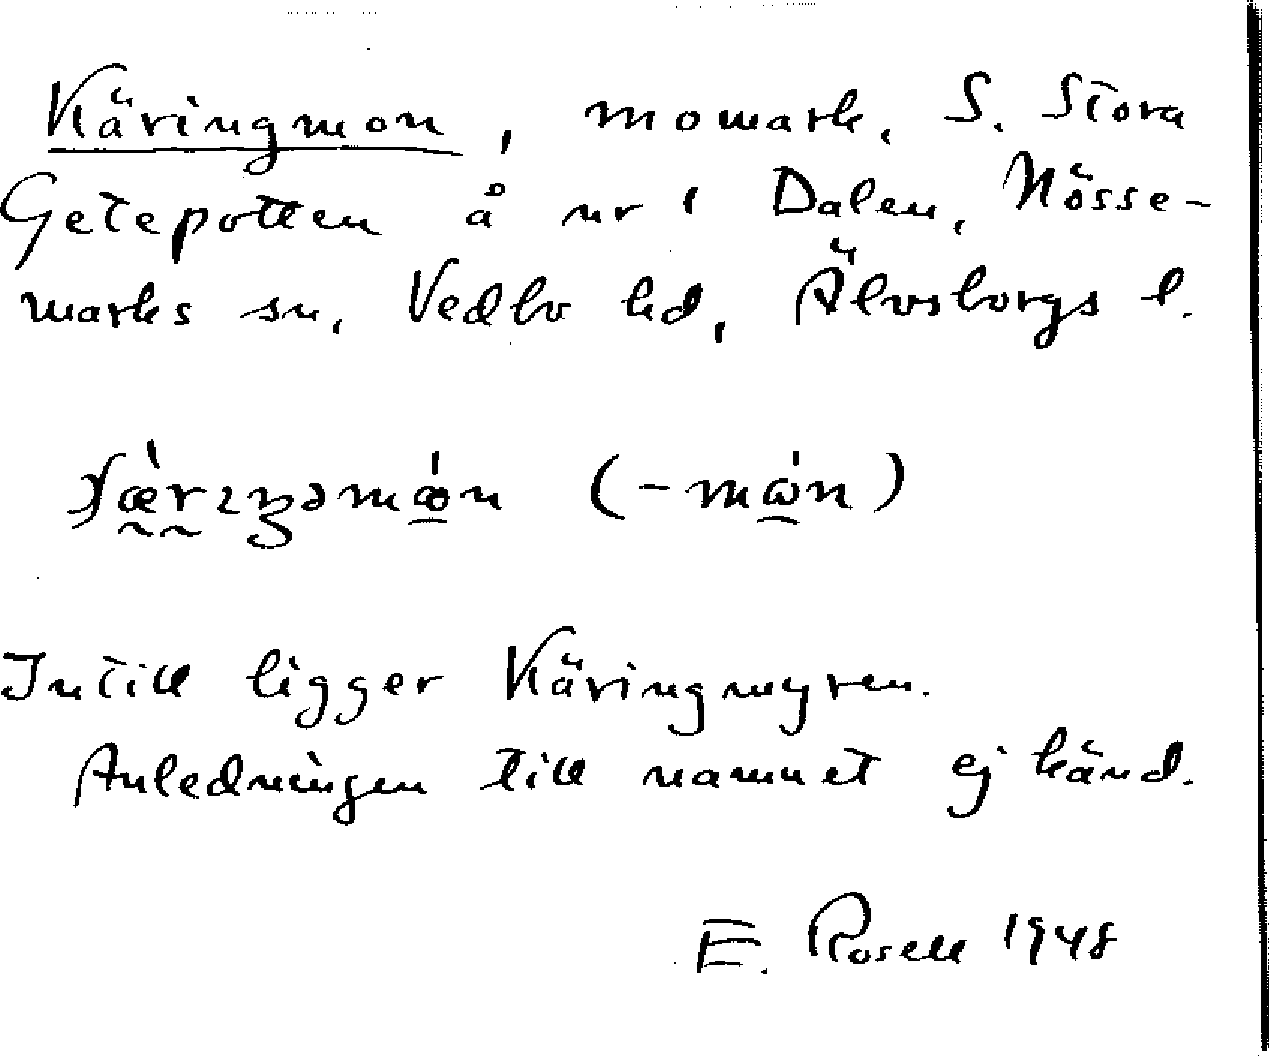 Käringmon, momark, S. Stora
Getepotten å nr 1 Dalen, Nösse-
marks sn, Vedbo hd, Älvsborgs l.
(-mɷ́n)
Intill ligger Käringmyren.
Anledningen till namnet ej känd.
E. Rosell 1948